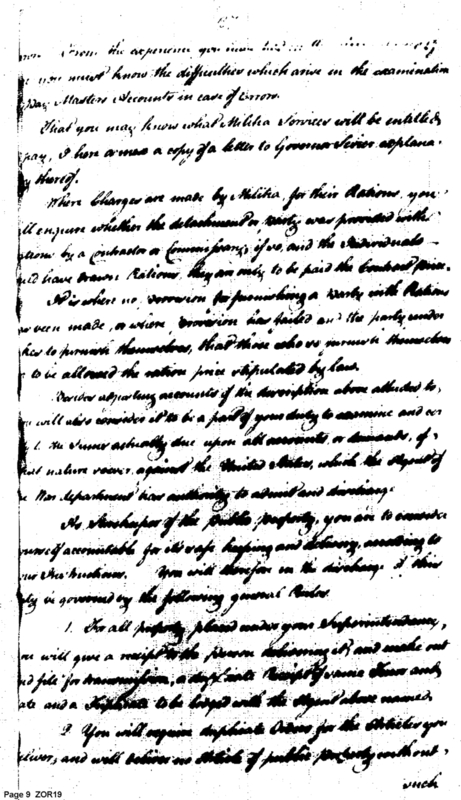 From the experience you have had in
you must know the difficulties which arise in the examination
Pay Masters Accounts in case of Errors.
That you may know what Militia Services will be entitled
pay, I here annex a copy of a letter to Governor Sevier explana-
y thereof.
Where Charges are made by Militia, for their Rations, you
ll enquire whether the detachment or party was provided with
ations by a Contractor or Commissary; if so, and the Individuals
uld have drawn Rations, they are only to be paid the Contract price.
It is where no provision for furnishing a party with Rations
s been made, or where provision has failed and the party under
kes to furnish themselves, that those who so furnish themselves
e to be allowed the ration price stipulated by law.
Besides adjusting accounts of the description above alluded to,
u will also consider it to be a part of your duty to examine and cer
the Sums actually due upon all accounts, or demands, of
hat nature soever, against the United States, which the Agent of
e War department has authority to admit and discharge
As Storekeeper of the public property, you are to consider
ourself accountable for its safe keeping and delivery, according to
our Instructions. You will therefore in the discharge of this
ty be governed by the following general Rules.
1. For all property placed under your Superintendency,
ou will give a receipt to the person delivering it, and make out
nd file for transmission, a duplicate Receipt of same Tenor and
ate and a Triplicate to be lodged with the Agent above named.
2. You will require duplicate Orders for the Articles you
eliver, and will deliver no Article of public property without
such
Page 9 ZOR19